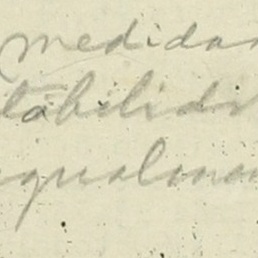 medidas
tabilida
igualmen